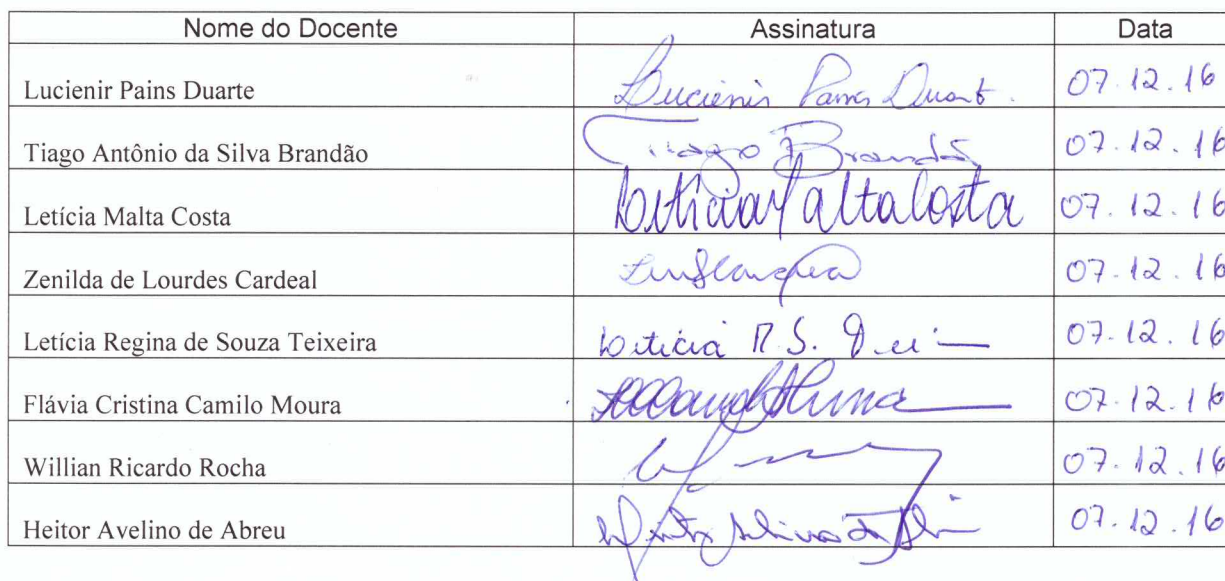 Nome do Docente Assinatura Data
Lucienir Pains Duarte Lucienir Pains Duarte. 07.12.16
Tiago Antônio da Silva Brandão Tiago Brandão 07.12.16
Letícia Malta Costa Letícia Malta Costa 07.12.16
Zenilda de Lourdes Cardeal 07.12.16
Letícia Regina de Souza Teixeira Letícia R. S. 07.12.16
Flávia Cristina Camilo Moura 07.12.16
Willian Ricardo Rocha 07.12.16
Heitor Avelino de Abreu 07.12.16